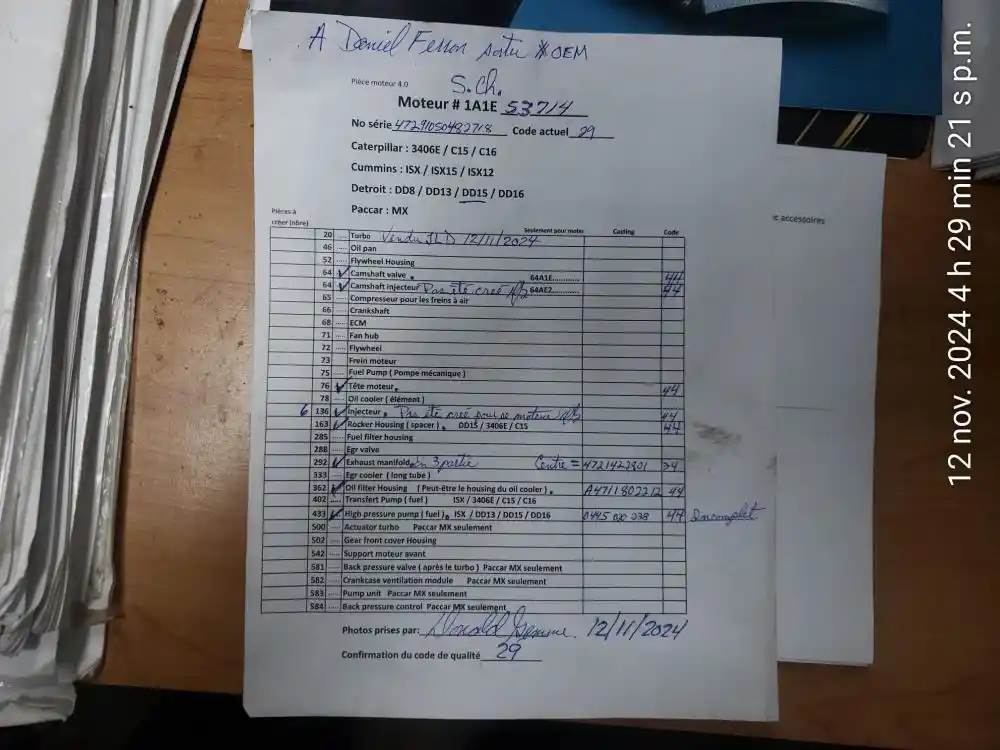 A Daniel Ferron sortir # OEM
Pièce moteur 4.0
S.Ch.
Moteur # 1A1E 53714
No série 47291050482718 Code actuel 29
Caterpillar : 3406E / C15 / C16
Cummins : ISX / ISX15 / ISX12
Detroit : DD8 / DD13 / DD15 / DD16
Paccar : MX
Pièces à créer (nbre) Seulement pour moteur Casting Code
20 ..... Turbo Vendu JLD 12/11/2024
46 ..... Oil pan
52 ..... Flywheel Housing
64 ✓ Camshaft valve . 64A1E............ 44
64 ✓ Camshaft injecteur Pas été creé 64AE2........... 44
65 ..... Compresseur pour les freins à air
66 ..... Crankshaft
68 ..... ECM
71 ..... Fan hub
72 ..... Flywheel
73 ..... Frein moteur
75 ..... Fuel Pump ( Pompe mécanique )
76 ✓ Tête moteur. 44
78 ..... Oil cooler ( élément )
6 136 ✓ Injecteur . Pas été creé pour ce moteur 44
163 ✓ Rocker Housing ( spacer ) . DD15 / 3406E / C15 44
285 ..... Fuel filter housing
288 ..... Egr valve
292 ✓ Exhaust manifold. En 3 partie Centre = 4721422801 34
333 ..... Egr cooler ( long tube )
362 ✓ Oil filter Housing ( Peut-être le housing du oil cooler ) . A4711802212 44
402 ..... Transfert Pump ( fuel ) ISX / 3406E / C15 / C16
433 ✓ High pressure pump ( fuel ). ISX / DD13 / DD15 / DD16 0445 020 238 44 Incomplet
500 ..... Actuator turbo Paccar MX seulement
502 ..... Gear front cover Housing
542 ..... Support moteur avant
581 ..... Back pressure valve ( après le turbo ) Paccar MX seulement
582 ..... Crankcase ventilation module Paccar MX seulement
583 ..... Pump unit Paccar MX seulement
584 ..... Back pressure control Paccar MX seulement
Photos prises par: Donald 12/11/2024
Confirmation du code de qualité 29
accessoires
12 nov. 2024 4 h 29 min 21 s p.m.